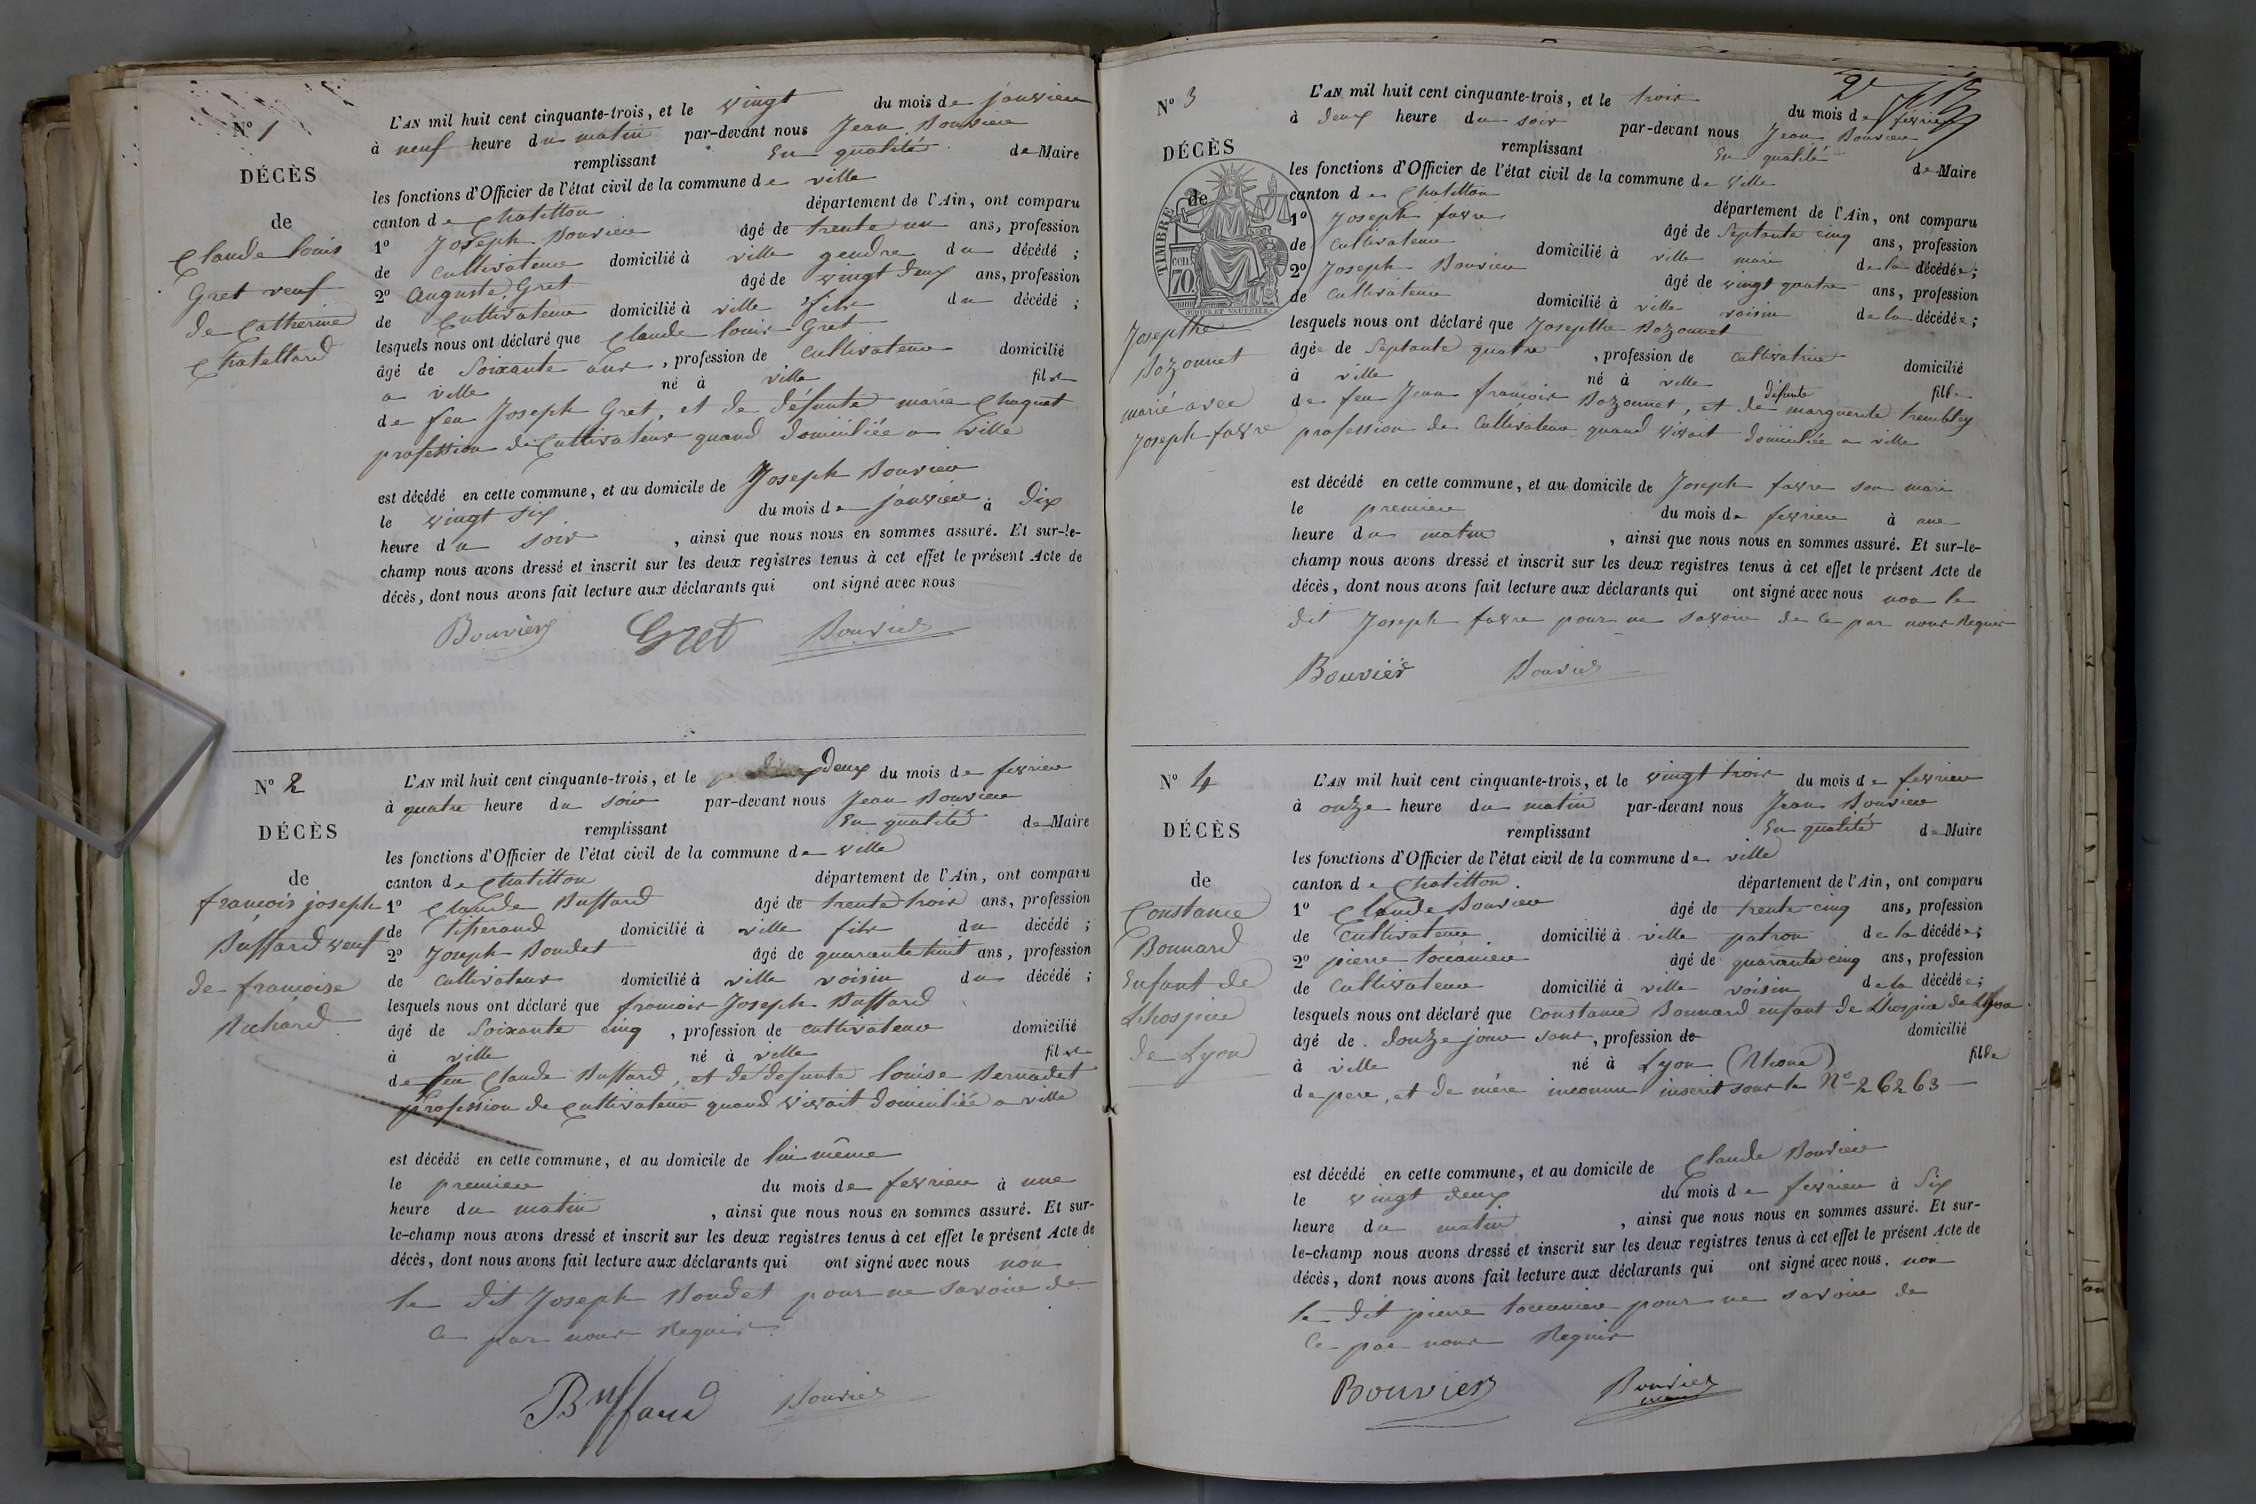 N° 1
DÉCÈS
de
Claude louis
Gret veuf
de Catherine
Chatellard
L'AN mil huit cent cinquante-trois, et le vingt du mois de janvier
à neuf heure du matin par-devant nous Jean Bouvier
remplissant En qualité de Maire
les fonctions d'Officier de l'état civil de la commune de ville
canton de Chatillon département de l'Ain, ont comparu
1° Joseph Bouvier âgé de trente un ans, profession
de cultivateur domicilié à ville gendre du décédé ;
2° Auguste Gret âgé de vingt deux ans, profession
de cultivateur domicilié à ville fils du décédé ;
lesquels nous ont déclaré que Claude louis Gret
âgé de Soixante ans, profession de cultivateur domicilié
a ville né à ville fils
de feu Joseph Gret, et de défunte marie Chaquet
profession de Cultivateur quand domiciliée a ville
est décédé en cette commune, et au domicile de Joseph Bouvier
le vingt six du mois de janvier à Dix
heure du soir , ainsi que nous nous en sommes assuré. Et sur-le-
champ nous avons dressé et inscrit sur les deux registres tenus à cet effet le présent Acte de
décès, dont nous avons fait lecture aux déclarants qui ont signé avec nous
Bouvier Gret Bouvier
N° 2
DÉCÈS
de
françois joseph
Buffard veuf
de françoise
Richard
L'AN mil huit cent cinquante-trois, et le deux du mois de fevrier
à quatre heure du soir par-devant nous Jean Bouvier
remplissant En qualité de Maire
les fonctions d'Officier de l'état civil de la commune de ville
canton de Chatillon département de l'Ain, ont comparu
1° Claude Buffard âgé de trente trois ans, profession
de Tisserand domicilié à ville fils du décédé ;
2° Joseph Boudet âgé de quarante huit ans, profession
de cultivateur domicilié à ville voisin du décédé ;
lesquels nous ont déclaré que françois Joseph Buffard
âgé de Soixante cinq , profession de cultivateur domicilié
à ville né à ville fils
de feu Claude Buffard, et de defunte louise Bernadet
profession de cultivateur quand vivait domiciliée a ville
est décédé en cette commune, et au domicile de lui même
le premier du mois de fevrier à une
heure du matin , ainsi que nous nous en sommes assuré. Et sur-
le-champ nous avons dressé et inscrit sur les deux registres tenus à cet effet le présent Acte de
décès, dont nous avons fait lecture aux déclarants qui ont signé avec nous non
le dit Joseph Boudet pour ne savoir de
ce par nous Requis
Buffard Bouvier
2e
N° 3
DÉCÈS
de
TIMBRE
cen
70
Josepthe
Bozonnet
marié avec
Joseph favre
L'AN mil huit cent cinquante-trois, et le trois du mois de fevrier
à deux heure du soir par-devant nous Jean Bouvier
remplissant En qualité de Maire
les fonctions d'Officier de l'état civil de la commune de ville
canton de Chatillon département de l'Ain, ont comparu
1° Joseph favre âgé de Septante cinq ans, profession
de cultivateur domicilié à ville mari de la décédée ;
2° Joseph Bouvier âgé de vingt quatre ans, profession
de cultivateur domicilié à ville voisin de la décédée ;
lesquels nous ont déclaré que Josepthe Bozonnet
âgée de Septante quatre , profession de cultivatrice domicilié
à ville né à ville fille
de feu Jean françois Bozonnet, et de défunte marguerite tremblay
profession de Cultivateur quand vivait domiciliée a ville
est décédé en cette commune, et au domicile de Joseph favre son mari
le premier du mois de fevrier à une
heure du matin , ainsi que nous nous en sommes assuré. Et sur-le-
champ nous avons dressé et inscrit sur les deux registres tenus à cet effet le présent Acte de
décès, dont nous avons fait lecture aux déclarants qui ont signé avec nous non le
dit Joseph favre pour ne savoir de ce par nous Requis
Bouvier Bouvier
N° 4
DÉCÈS
de
Constance
Bonnard
Enfant de
Lhospice
de Lyon
L'AN mil huit cent cinquante-trois, et le vingt trois du mois de fevrier
à onze heure du matin par-devant nous Jean Bouvier
remplissant En qualité de Maire
les fonctions d'Officier de l'état civil de la commune de ville
canton de Chatillon département de l'Ain, ont comparu
1° Claude Bouvier âgé de trente cinq ans, profession
de cultivateur domicilié à ville patron de la décédée ;
2° pierre âgé de quarante cinq ans, profession
de cultivateur domicilié à ville voisin de la décédée ;
lesquels nous ont déclaré que Constance Bonnard enfant de Lhospice de Lyon
âgé de douze jour , profession de domicilié
à ville né à Lyon (Rhone) fille
de pere, et de mère inconnu inscrit sous le N° 26263
est décédé en cette commune, et au domicile de Claude Bouvier
le vingt deux du mois de fevrier à Six
heure du matin , ainsi que nous nous en sommes assuré. Et sur-
le-champ nous avons dressé et inscrit sur les deux registres tenus à cet effet le présent Acte de
décès, dont nous avons fait lecture aux déclarants qui ont signé avec nous. non
le dit pierre pour ne savoir de
ce par nous Requis
Bouvier Bouvier